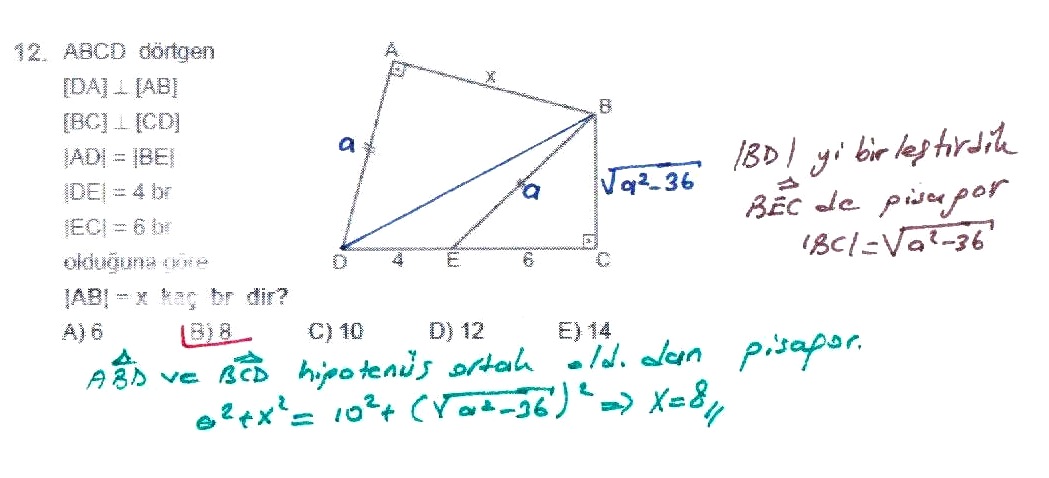 12. ABCD dörtgen
[DA] ⊥ [AB]
[BC] ⊥ [CD]
|AD| = |BE|
|DE| = 4 br
|EC| = 6 br
olduğuna göre
|AB| = x kaç br dir?
A) 6 B) 8 C) 10 D) 12 E) 14
A
x
B
a
a
√a²-36
D 4 E 6 C
|BD| yi birleştirdik
BEC de pisapor
|BC| = √a²-36
ABD ve BCD hipotenüs ortak old. dan pisapor.
a²+x² = 10²+(√a²-36)² ⇒ x=8//